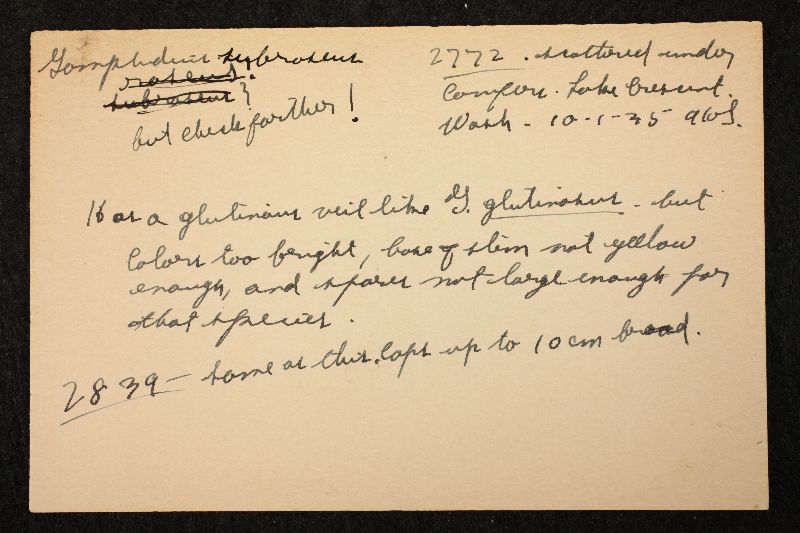 Gomphidius subroseus
roseus.
subroseus?
but check further!
2772. scattered under
Conifers. Lake Crescent.
Wash - 10-1-35 AHS.
Has a glutinous veil like G. glutinosus - but
Colors too bright, base of stem not yellow
enough, and spores not large enough for
that species.
2839 - same as this. Caps up to 10 cm broad.